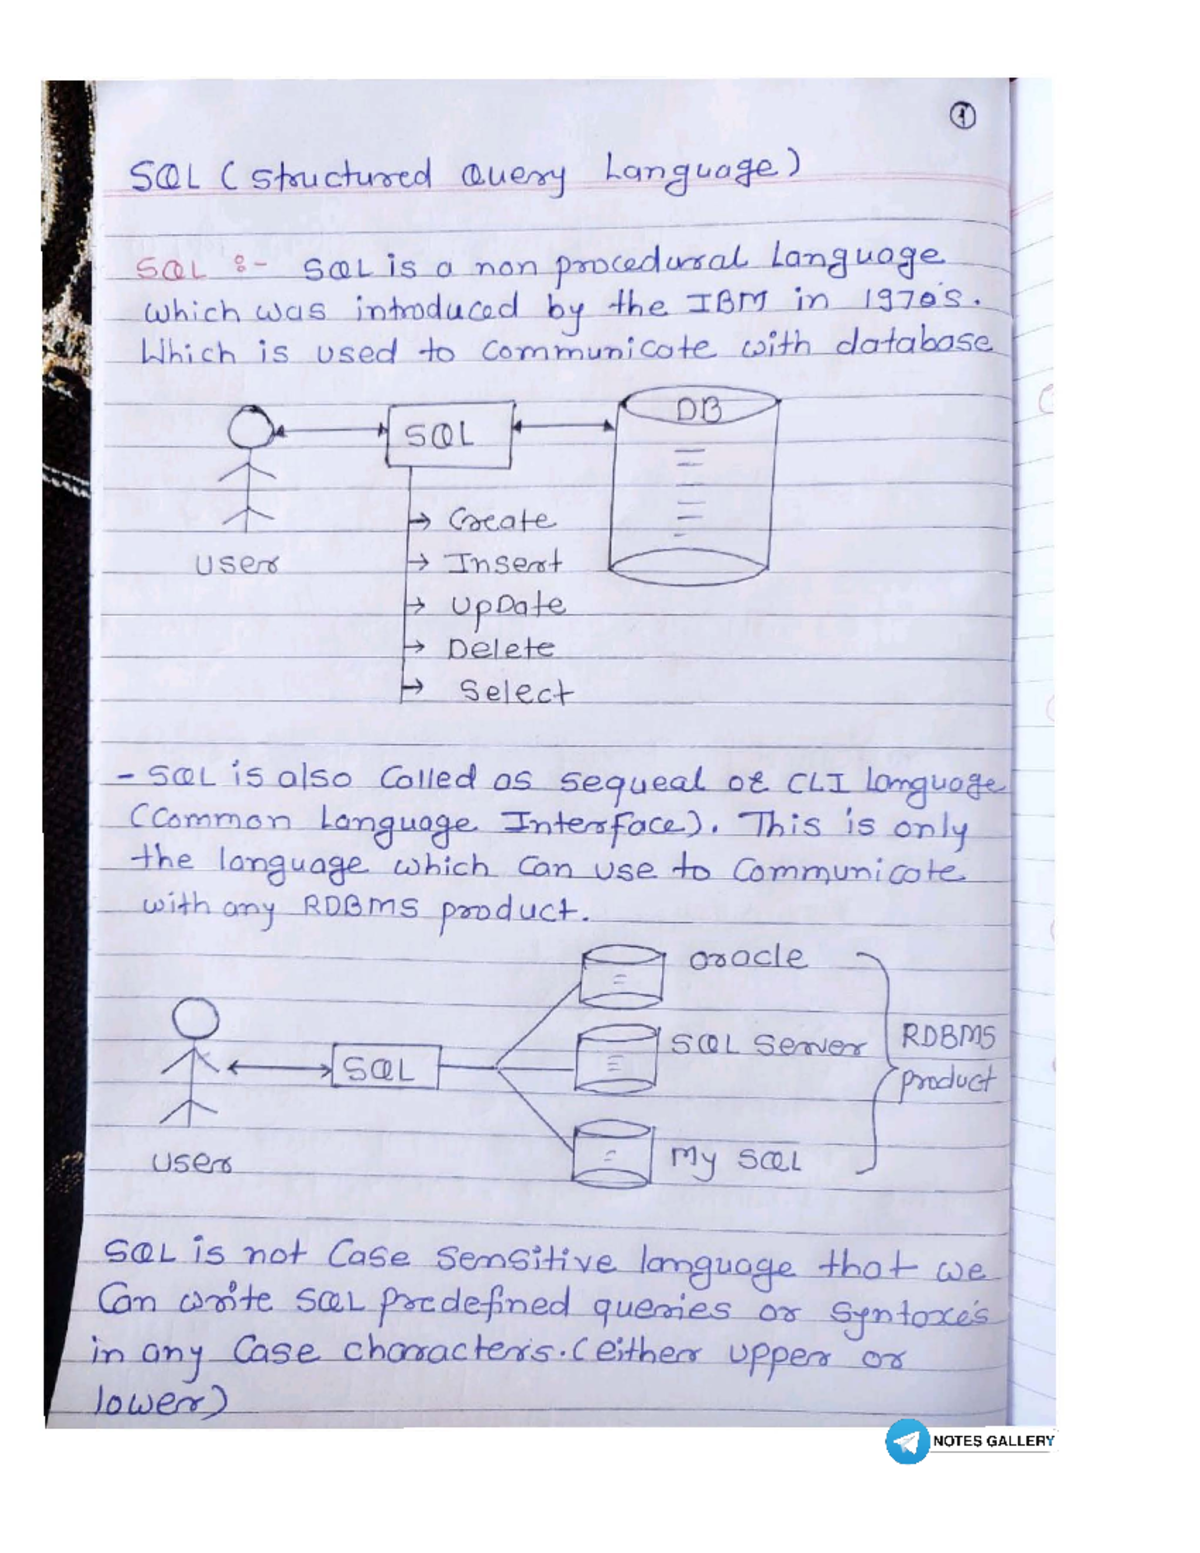 1
SQL (Structured Query Language)
SQL :- SQL is a non procedural Language
which was introduced by the IBM in 1970's.
Which is used to communicate with database
DB
SQL
→ Create
user
→ Insert
→ UpDate
→ Delete
→ Select
- SQL is also Called as sequeal or CLI language
(Common Language Interface). This is only
the language which can use to communicate
with any RDBMS product.
oracle
SQL Server
RDBMS
product
SQL
user
My SQL
SQL is not Case sensitive language that we
Can write SQL predefined queries or syntaxe's
in any Case characters. (either upper or
lower)
NOTES GALLERY